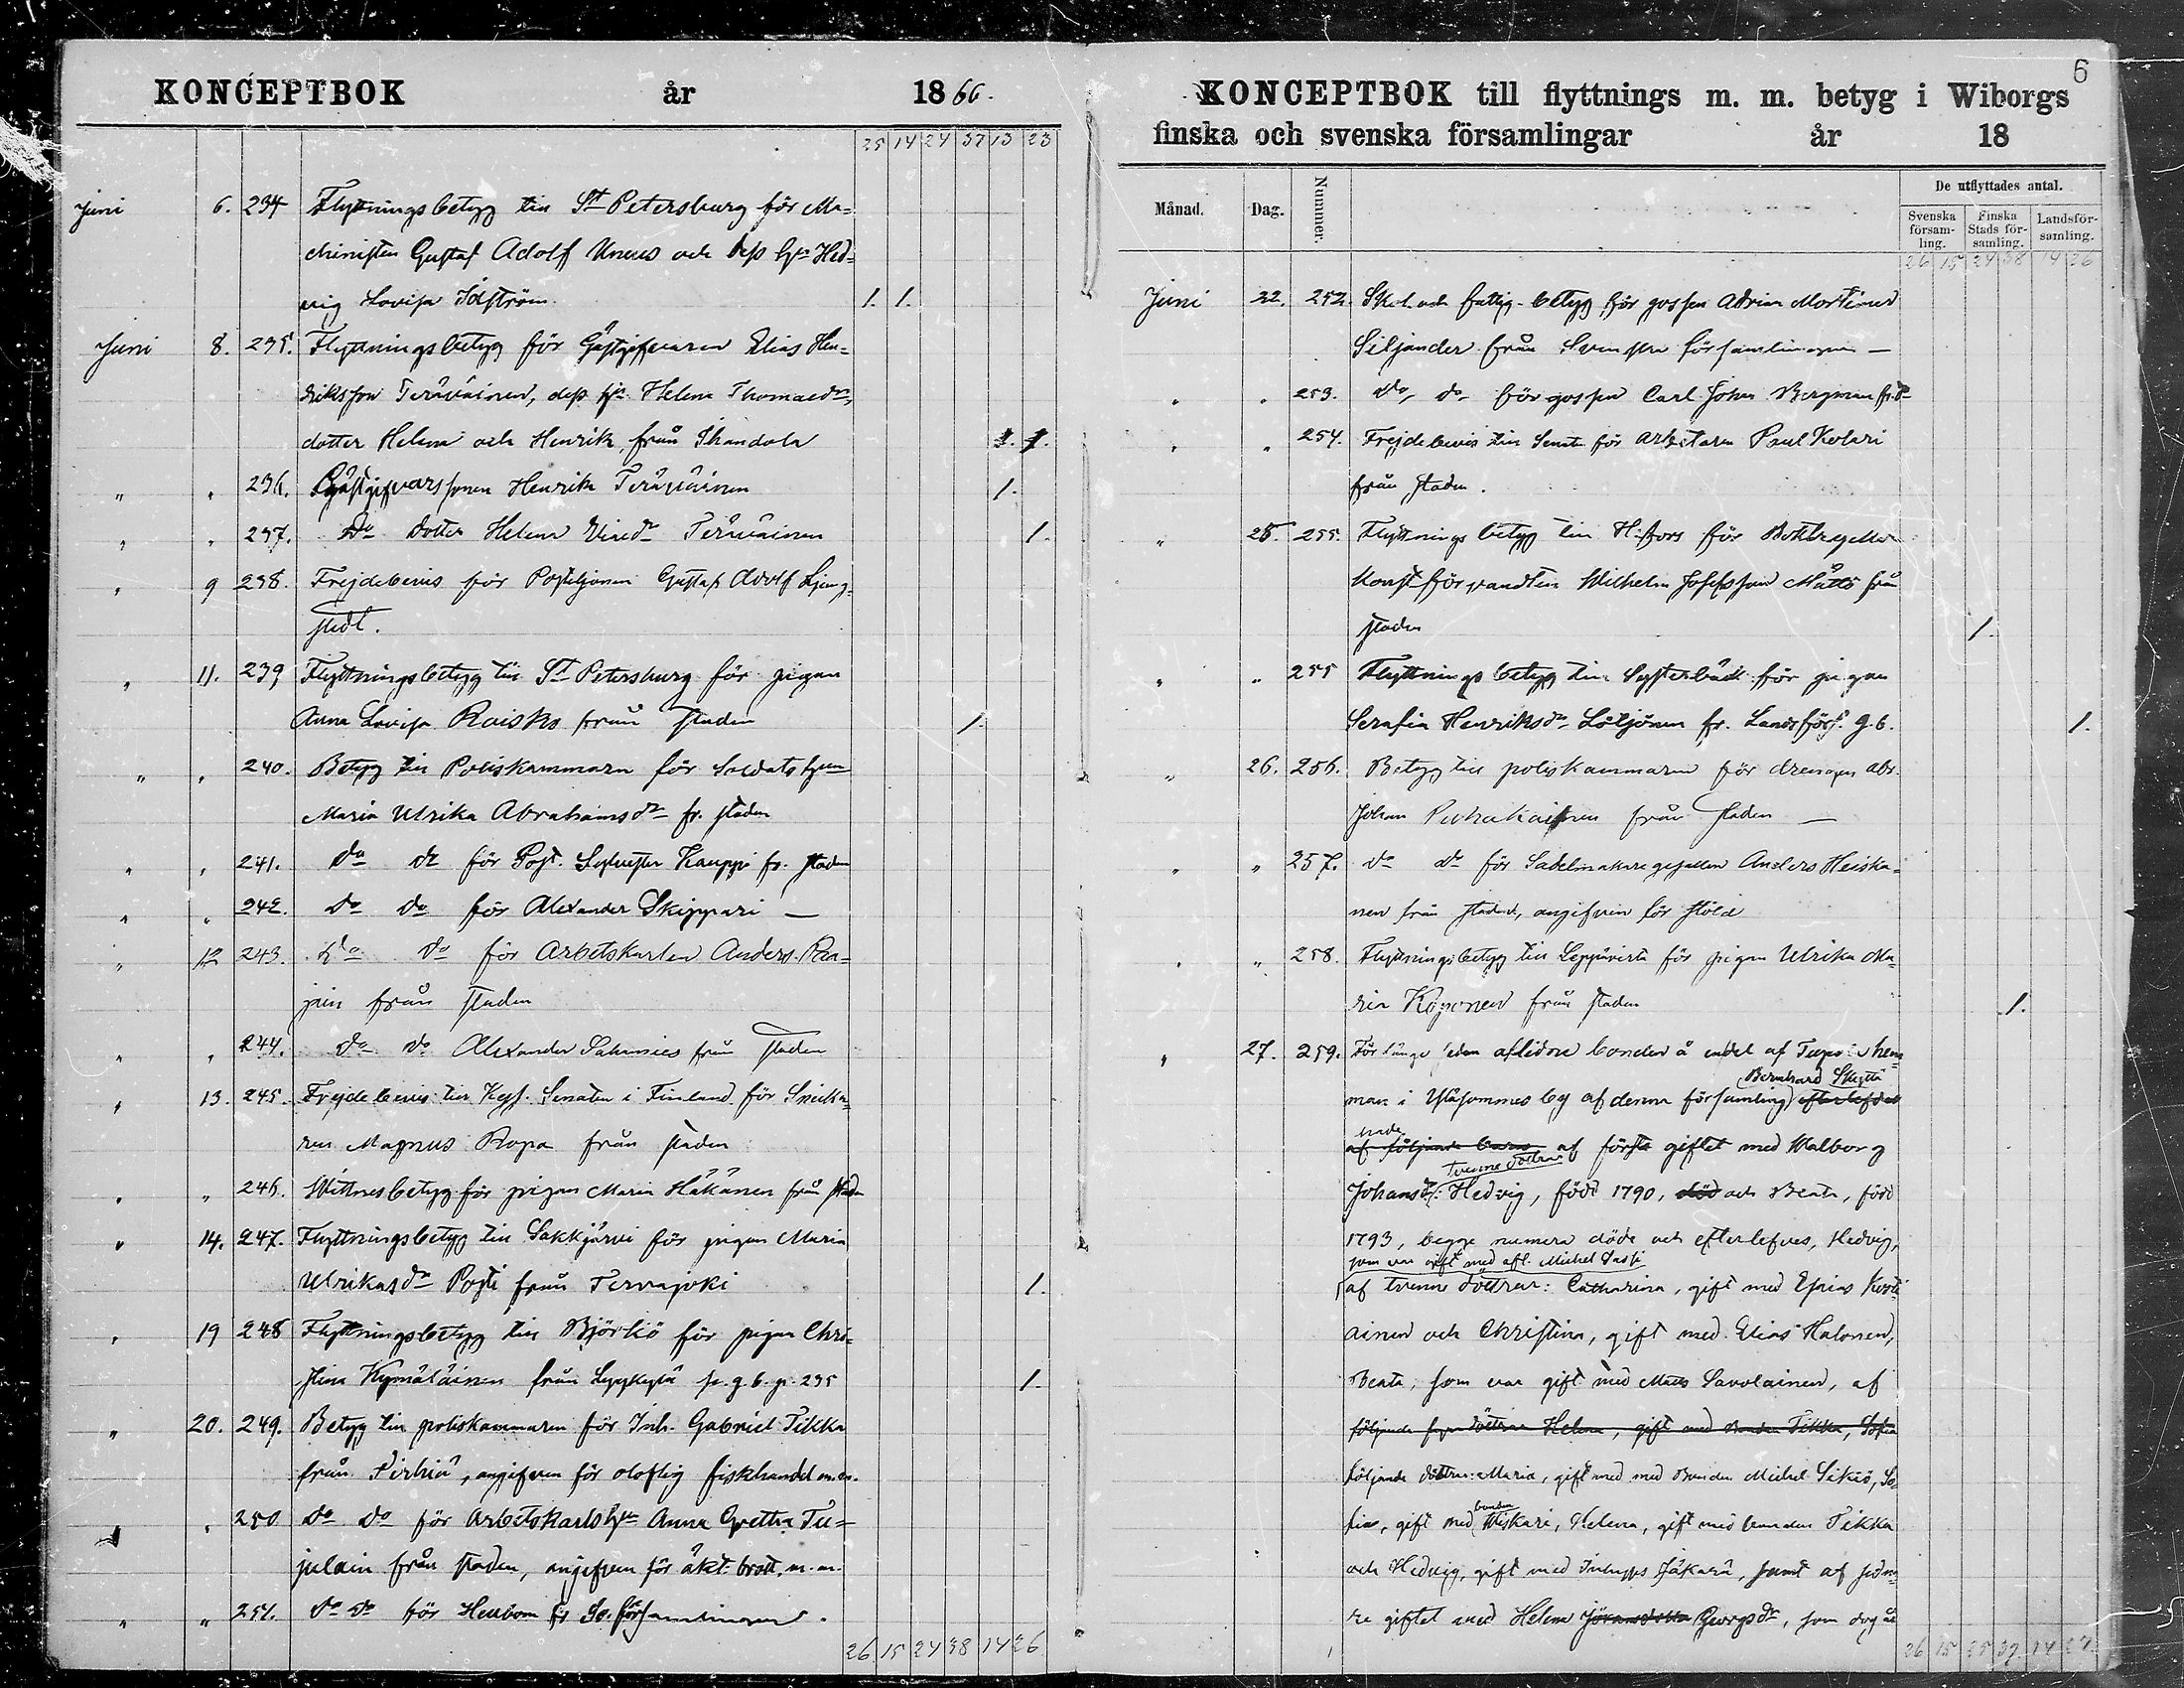 KONCEPTBOK år 1866.
25 14 24 37 13 23
Juni 6. 234 Flyttningsbetyg till St Petersburg för Ma=
chinisten Gustaf Adolf Uneus och dess hu Hed=
vig Lovisa Idström 1. 1.
Juni 8. 235. Flyttningsbetyg för Gästgifvaren Elias Hen=
riksson Teräväinen, dess hu Helena Thomasdr,
dotter Helena och Henrik, från Ihandala 1. 1.
" " 236. Gästgifvarssonen Henrik Teräväinen 1.
" " 237. Do dotter Helena Eliaedr Teräväinen 1.
" 9 238. Frejdebevis för Postiljonen Gustaf Adolf Ljung=
stedt.
" 11. 239 Flyttningsbetyg till St Petersburg för pigan
Anna Lovisa Raiski från staden 1.
" " 240. Betyg till Poliskammaren för Soldatshun
Maria Ulrika Abrahamsdr fr. staden
" " 241. do do för Post. Sylvester Kauppi fr. staden
" " 242. do do för Alexander Skippari —
" 12 243. do do för Arbetskarlen Anders Raa=
jain från staden
" " 244. do do Alexander Sahanies från staden
" 13. 245. Frejdebevis till Kejs. Senaten i Finland för Snicka=
ren Magnus Ropa från staden
" " 246. Wittnesbetyg för pigan Maria Häkänen från staden
" 14. 247. Flyttningsbetyg till Säkkjärvi för pigan Maria
Ulrikasdr Posti från Tervajoki 1.
" 19 248 Flyttningsbetyg till Björkö för pigan Chri=
stina Kymäläinen från g. b. p. 235 1.
" 20. 249. Betyg till poliskammaren för Inh. Gabriel Tikka
från Pirhiä, angifven för oloflig fiskhandel m.m.
" " 250 do do för Arbetskarlshu Anna Gretta Tu=
julain från staden, angifven för äkt. brott, m. m.
" " 251. do do för Herrbom fr Sv. församlingen.
26 15 24 38 14 26
6
KONCEPTBOK till flyttnings m. m. betyg i Wiborgs
finska och svenska församlingar år 18
Månad. Dag. Nummer. De utflyttades antal.
Svenska församling. Finska Stads församling. Landsförsamling.
26 15 24 38 14 26
Juni 22. 252. Skol och fattig-betyg för gossen Adrian Mortimer
Siljander från Svenska församlingen —
" " 253. do, do för gossen Carl Johan Bergman fr. do
" " 254. Frejdebevis till Senaten för arbetaren Paul Kolari
från staden.
" 25. 255. Flyttningsbetyg till H:fors för Boktryckeri
Konstförvandten Wilhelm Josefsson Mått från
staden 1.
" " 255 Flyttningsbetyg till Systerbäck för pigan
Serafia Henriksdr Lötjönen fr. Landsförs. g. b. 1.
" 26. 256. Betyg till poliskammaren för drengen Abr.
Johan från staden —
" " 257. do do för Sadelmakaregesällen Anders Heiska=
nen från staden, angifven för stöld
" " 258. Flyttningsbetyg till Leppävirta för pigan Ulrika Ma=
ria Koponen från staden 1.
" 27. 259. För länge sedan aflidne bonden å endel af hem=
Bernhard Skyttä
man i by af denna församling efterlefdes
hade
af följande barn af första giftet med Walborg
tvenne döttrar
Johansdr: Hedvig, född 1790, död och Beata, född
1793, begge numera döda och efterlefves, Hedvig,
som var gift med afl. Michel Dassi
af tvenne döttrar: Catharina, gift med Esaias
ainen och Christina, gift med Elias Halonen,
Beata, som var gift med Matts Savolainen, af
följande fyra döttrar Helena, gift med Bonden Tikka, Sofia
följande döttrar: Maria, gift med med Bonden Michel Sikiö, So=
bonden
fia, gift med Wiskari, Helena, gift med bonden Tikka
och Hedvig, gift med Inhyses Jäkärä, samt af sedna=
re giftet med Helena Jöransdotter Georgsdr, som dog år
26 15 25 39 14 27